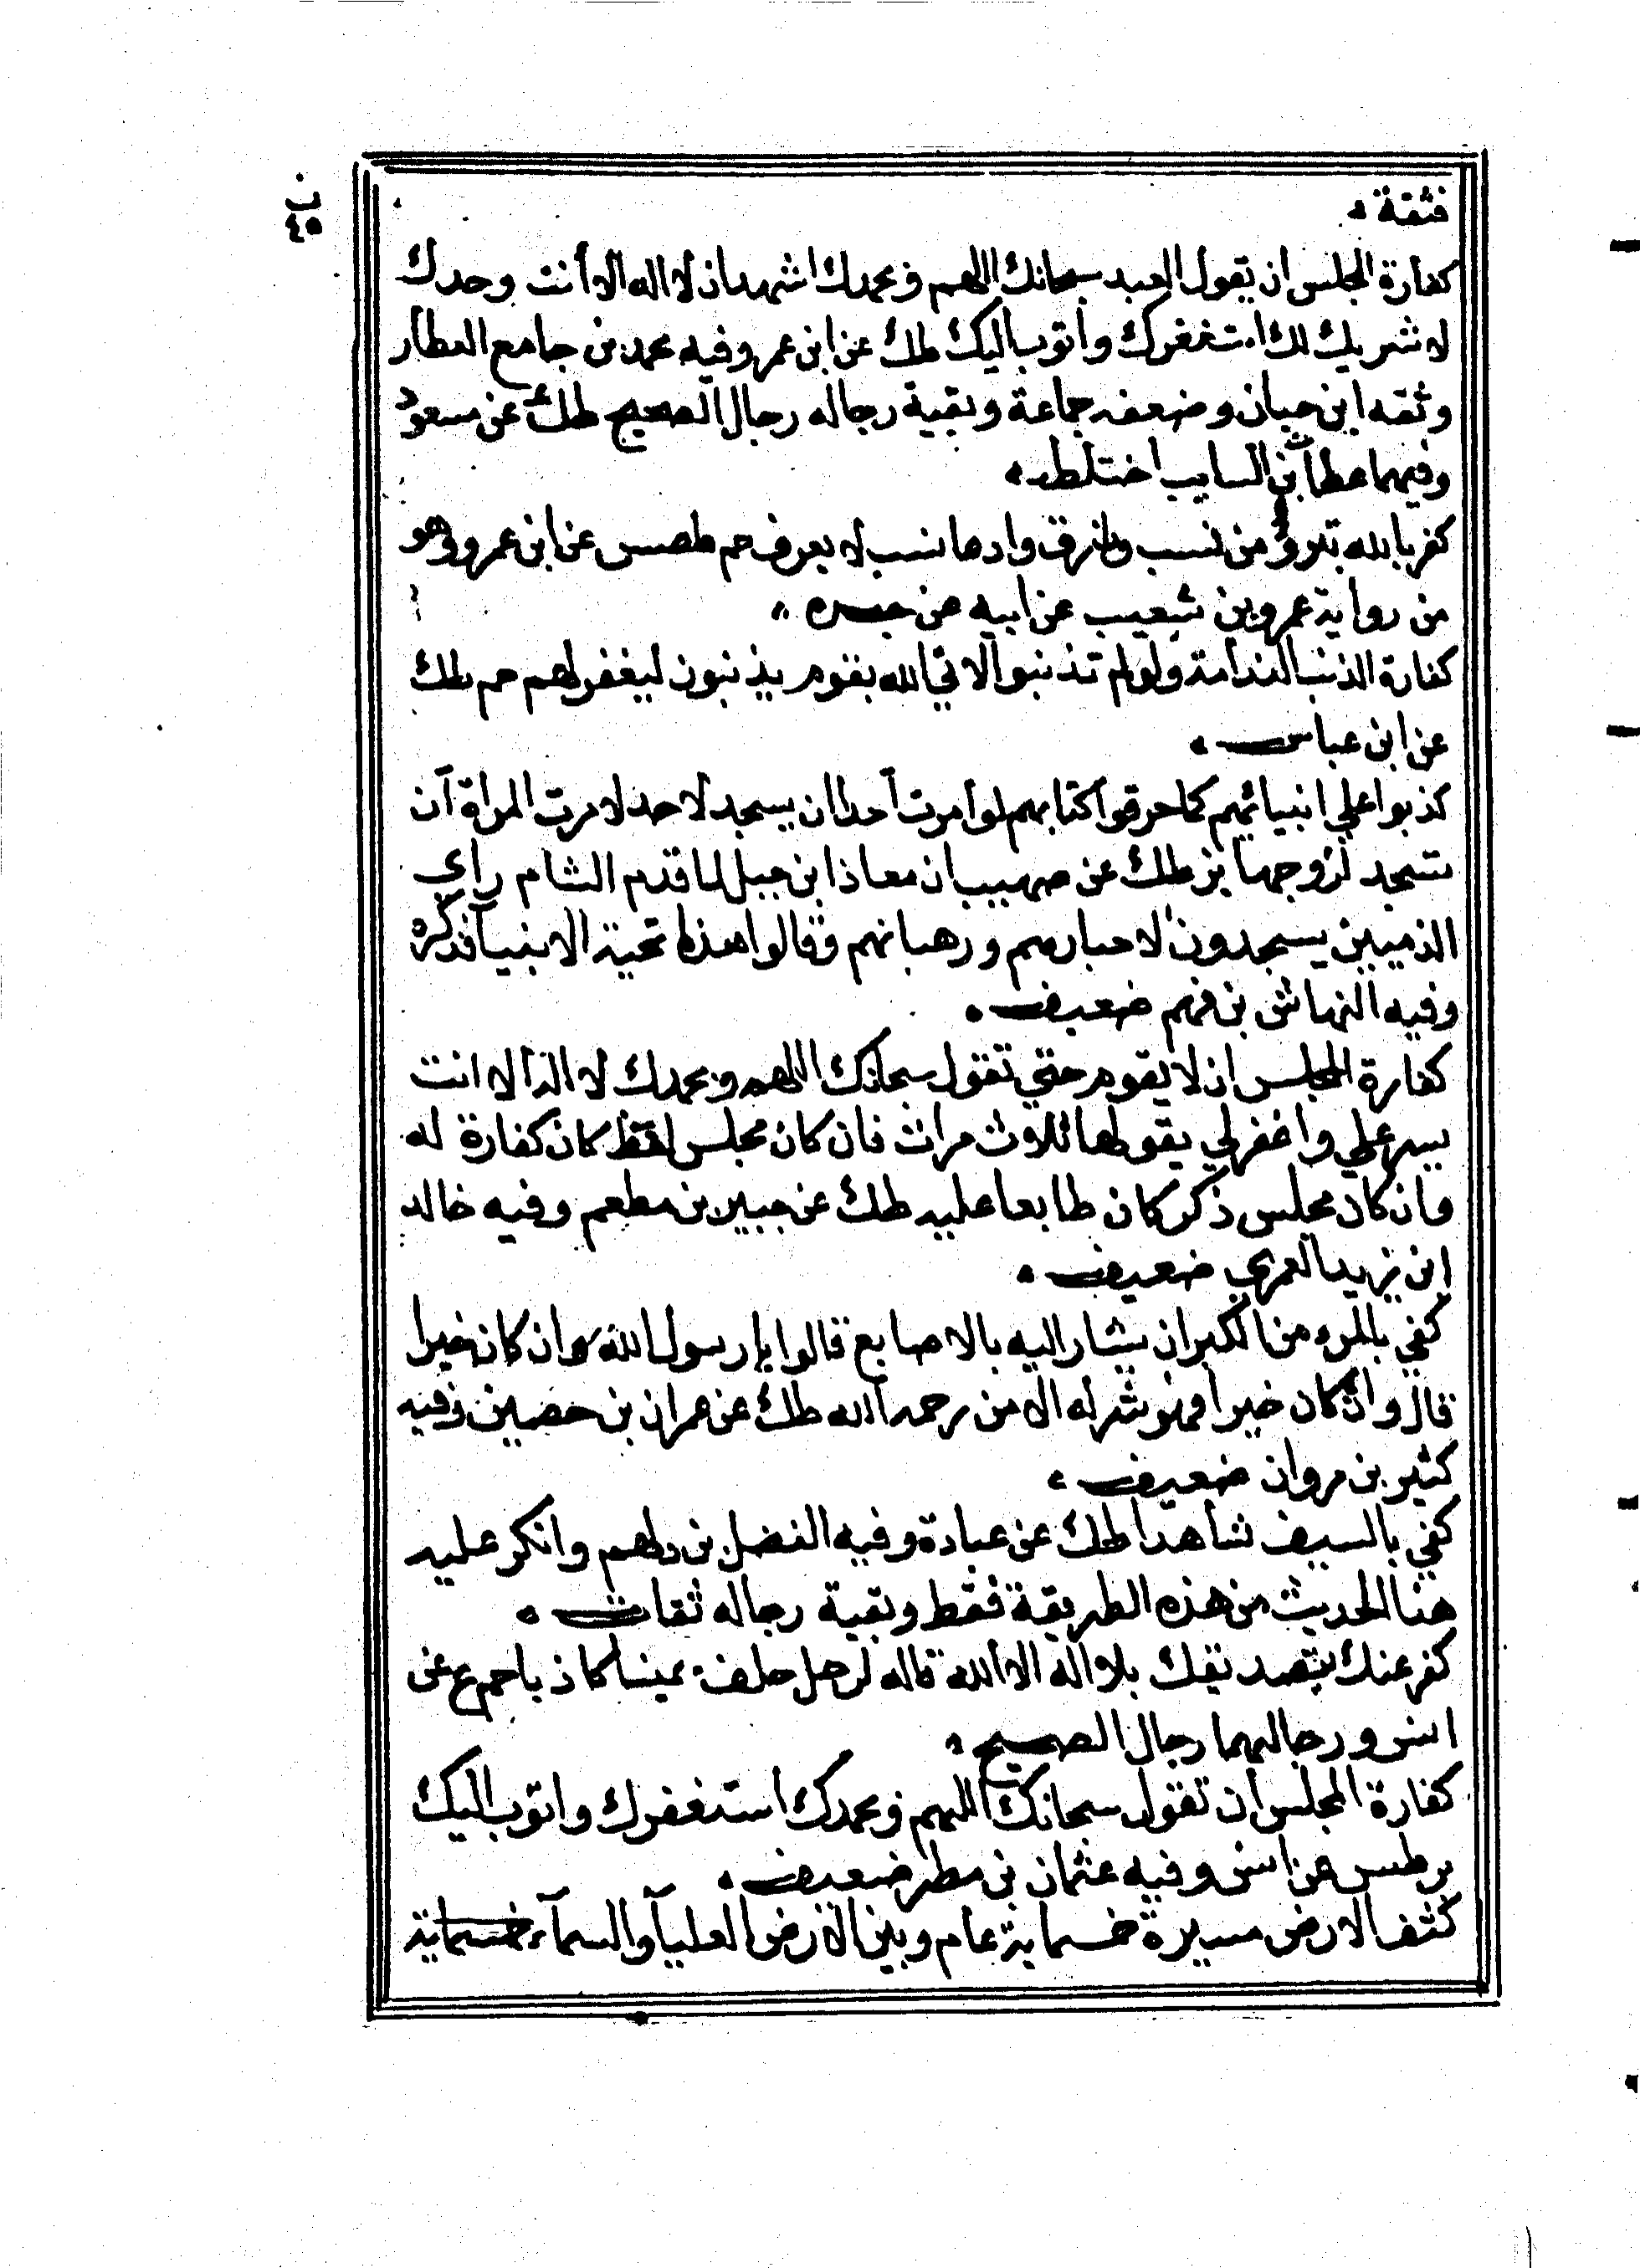 ن
٤٥
فثقة
كفارة المجلس ان يقول العبد سبحانك اللهم وبحمدك اشهد ان لا اله الا أنت وحدك
لا شريك لك استغفرك واتوب اليك طك عن ابن عمر وفيه محمد بن جامع العطار
وثقه ابن حبان وضعفه جماعة وبقية رجاله رجال الصحيح طك عن مسعود
وفيهما عطا بن السايب اختلط
كفر بالله تبرؤ من نسب وان رق وادعا نسب لا يعرف حم طصس عن ابن عمرو وهو
من رواية عمرو بن شعيب عن ابيه عن جده
كفارة الذنب الندامة ولو لم تذنبوا لاتي الله بقوم يذنبون ليغفر لهم حم طك
عن ابن عباس
كذبوا علي انبيائهم كما حرقوا كتابهم لو امرت أحدا ان يسجد لاحد لامرت المراة أن
تسجد لزوجها بز طك عن صهيب ان معاذا ابن جبل لما قدم الشام راي
الذميين يسجدون لاحبارهم ورهبانهم وقالوا هذا تحية الانبيا فذكره
وفيه النهاش بن فهم ضعيف
كفارة المجلس ان لا يقوم حتي تقول سبحانك اللهم وبحمدك لا اله الا انت
علي واغفر لي يقولها ثلاث مرات فان كان مجلس لغط كان كفارة له
وان كان مجلس ذكر كان طابعا عليه طك عن جبير بن مطعم وفيه خالد
ابن يزيد العمري ضعيف
كفي بالمرء من الكبر ان يشار اليه بالاصابع قالوا يا رسول الله وان كان خيرا
قال وان كان خيرا فهو شر له الا من رحمه الله طك عن عمران بن حصين وفيه
كثير بن مروان ضعيف
كفي بالسيف شاهدا طك عن عبادة وفيه الفضل بن دلهم وانكر عليه
هذا الحديث من هذه الطريقة فقط وبقية رجاله ثقات
كفر عنك بتصديقك بلا اله الا الله قاله لرجل حلف يمينا كاذبا حم ع عن
انس ورجالهما رجال الصحيح
كفارة المجلس أن تقول سبحانك اللهم وبحمدك استغفرك واتوب اليك
بز طس عن انس وفيه عثمان بن مطر ضعيف
كثف الارض مسيرة خمسماية عام وبين الارض العليا والسمآء خمسماية